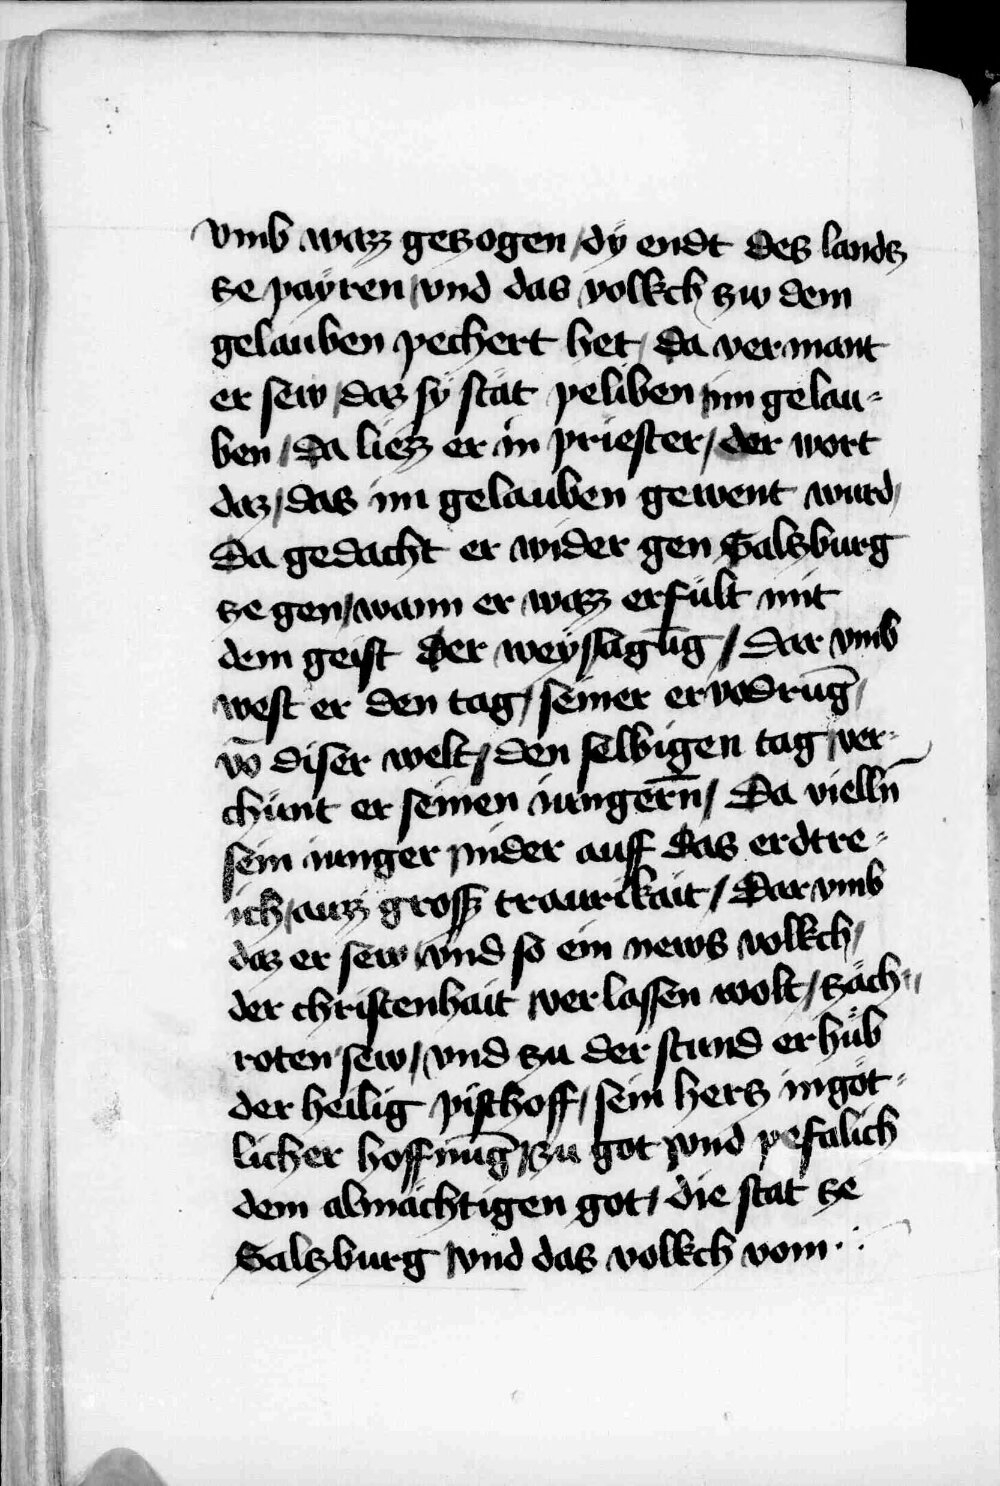 vmb waz gezogen / dÿ endt des landz
ze paÿren / vnd das volkch zw dem
gelauben pechert het / Da vermant
er sew / daz sÿ stät peliben im gelau-
ben / Da liezz er in priester / der wort
daz / das im gelauben gewent wurd /
Da gedacht er wider gen Salzburg
ze gen / wann er waz erfült mit
dem geist der weÿssagūg / Dar vmb
west er den tag / seiner ervodrūg /
vō diser welt / den selbigen tag ver-
chünt er seinen iungerñ / Da vielln̄
sein iunger nider auff das erdtre-
ich / auz grossz traurikait / Dar vmb
daz er sew vnd so ein news volkch /
der christenhait verlassen wolt / zäch-
roten sew / vnd zu der stund erhüb
der heilig pischoff / sein herz in göt-
licher hoffnūg zu got vnd pefalich
dem almächtigen got / die stat ze
Salzburg vnd das volkch vom ·: